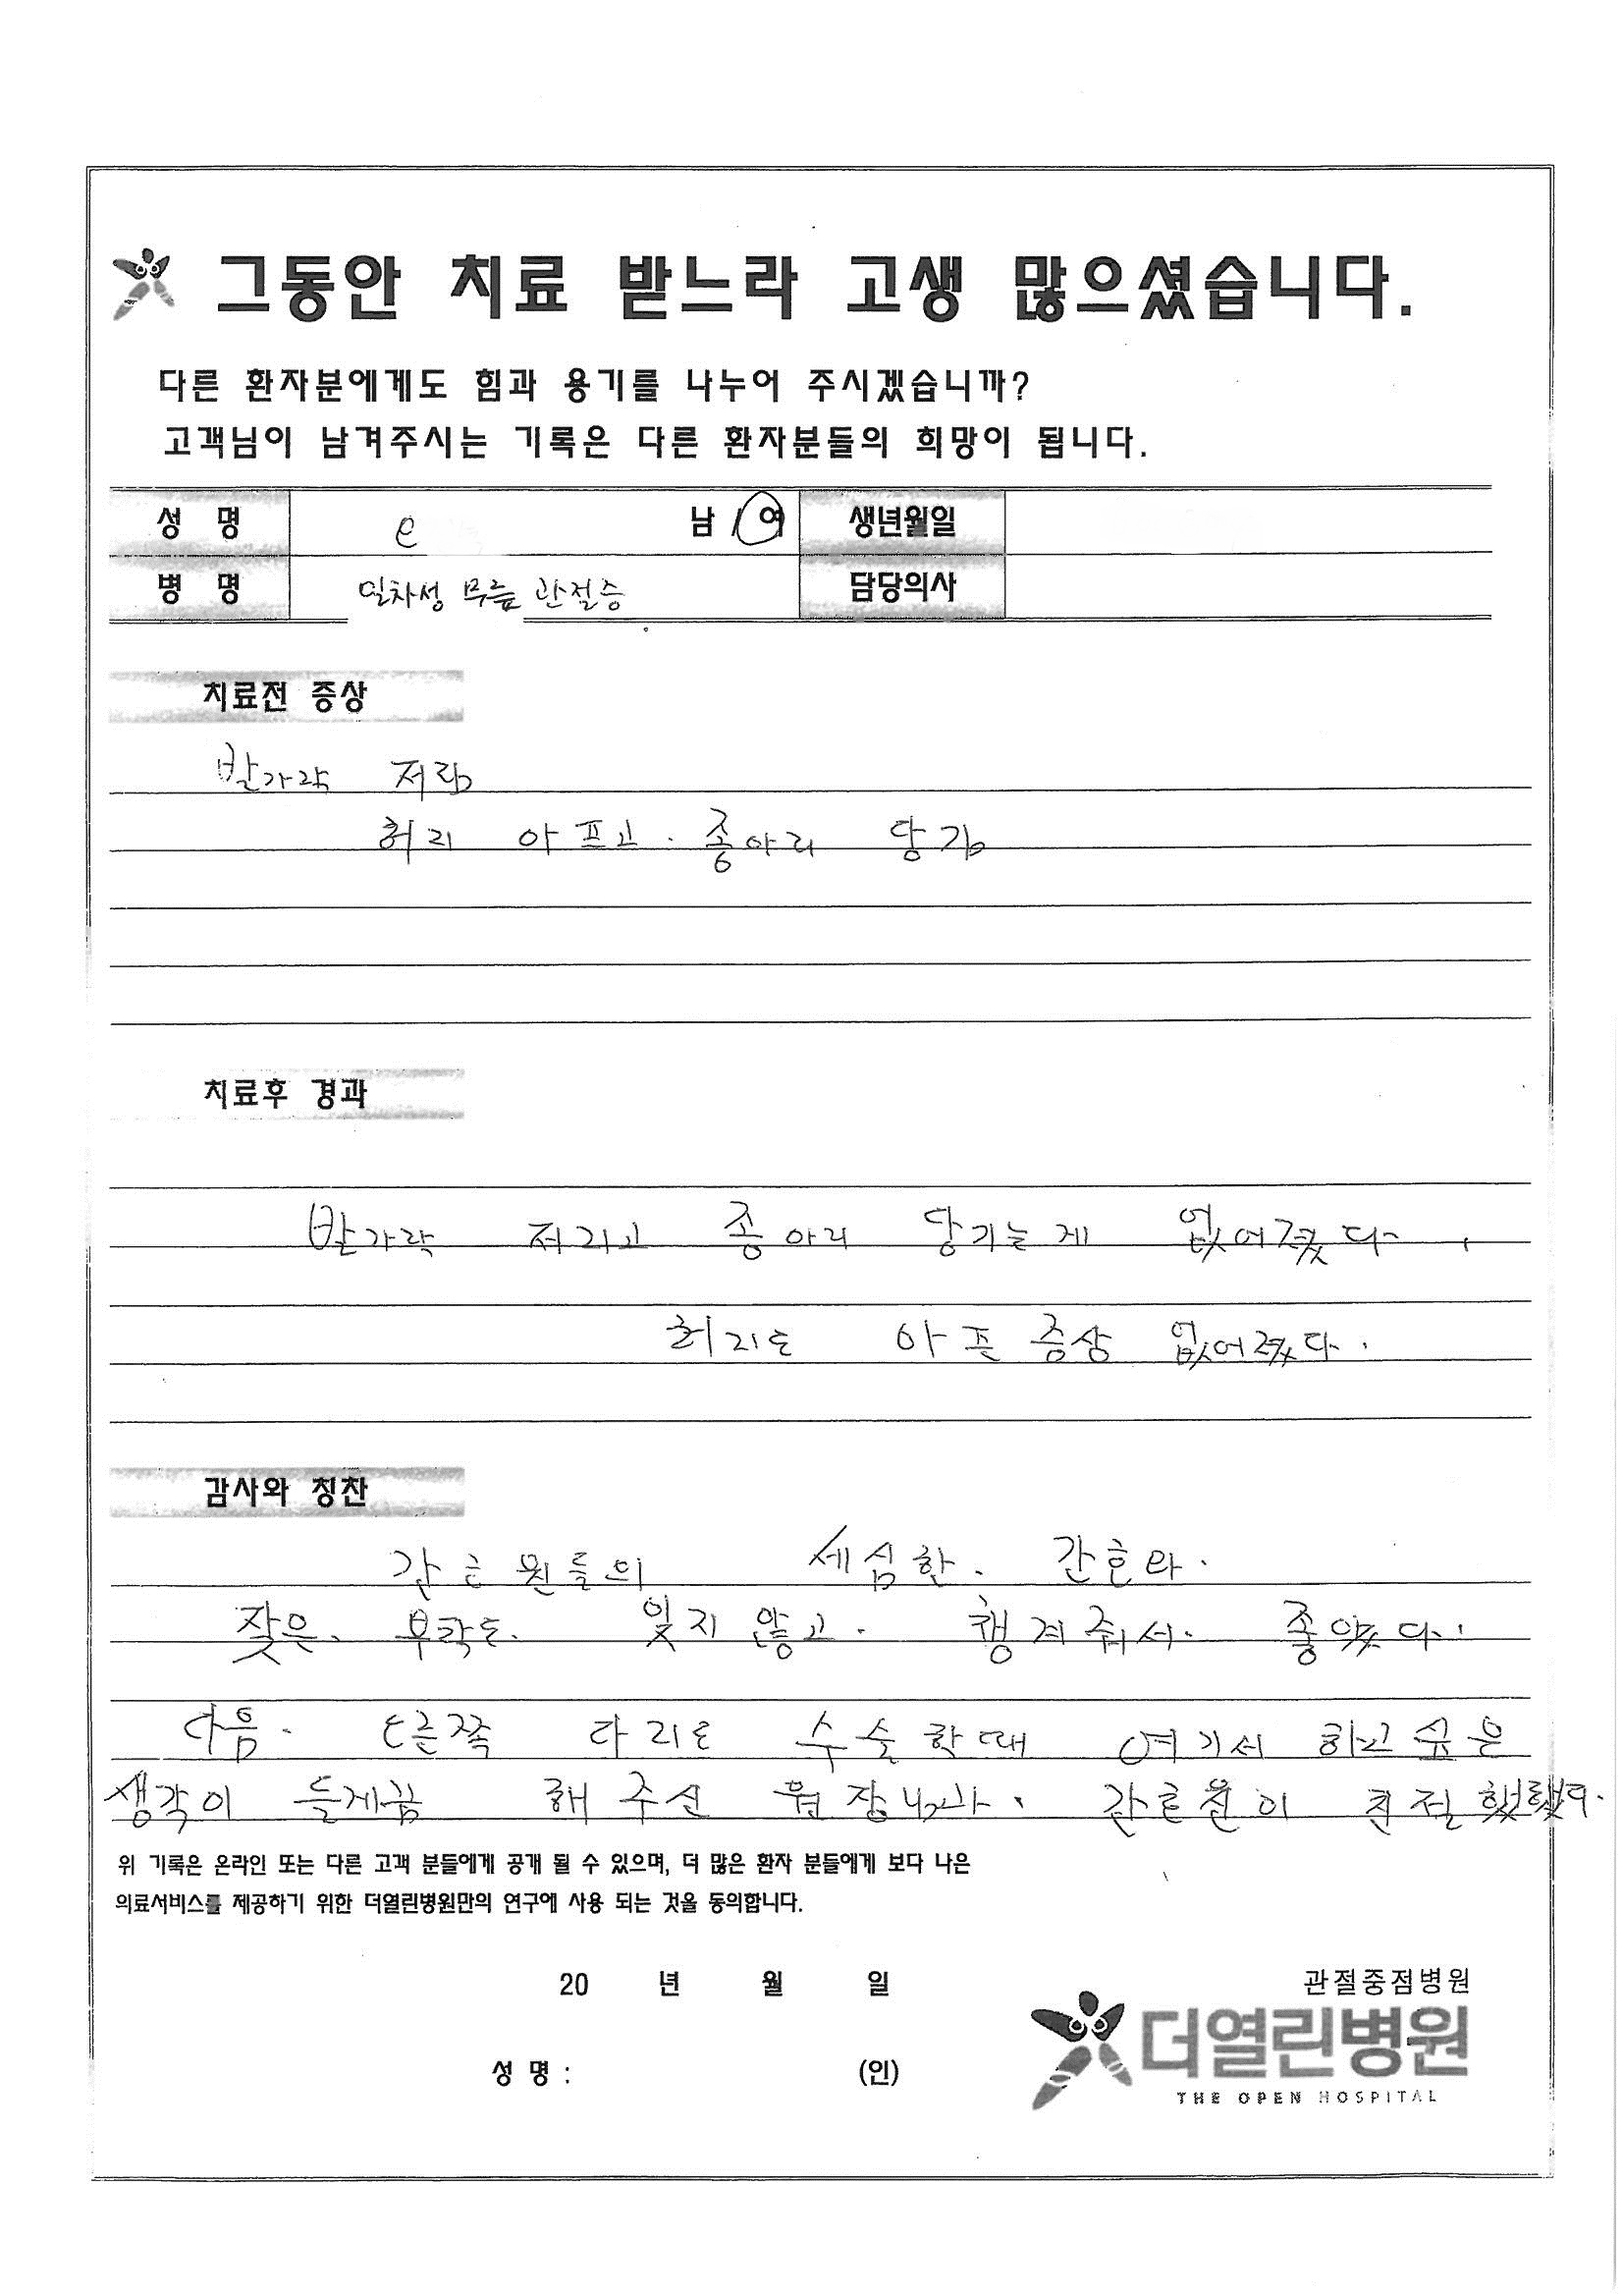 그동안 치료 받느라 고생 많으셨습니다.
다른 환자분에게도 힘과 용기를 나누어 주시겠습니까?
고객님이 남겨주시는 기록은 다른 환자분들의 희망이 됩니다.
성 명 남 / 여 생년월일
병 명 일차성 무릎 관절증 담당의사
치료전 증상
발가락 저림
허리 아프고. 종아리 당김
치료후 경과
발가락 저리고 종아리 당기는게 없어졌다.
허리도 아픈 증상 없어졌다.
감사와 칭찬
간호원들의 세심한. 간호와.
잦은. 부탁도. 잊지 않고. 챙겨줘서. 좋았다.
다음. 다리도 수술할때 여기서 하고 싶은
생각이 들게끔 해 주신 원장님과. 간호원이 친절
위 기록은 온라인 또는 다른 고객 분들에게 공개 될 수 있으며, 더 많은 환자 분들에게 보다 나은
의료서비스를 제공하기 위한 더열린병원만의 연구에 사용 되는 것을 동의합니다.
20 년 월 일
성 명 : (인)
관절중점병원
더열린병원
THE OPEN HOSPITAL